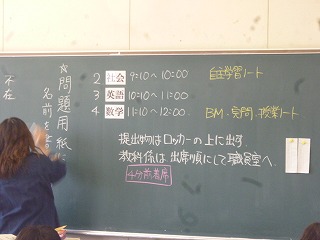 2 社会 9:10～10:00 自主学習ノート
3 英語 10:10～11:00
4 数学 11:10～12:00 BM・質問・授業ノート
提出物はロッカーの上に出す。
教科係は出席順にして職員室へ。
4分前着席
☆問題用紙に
名前を
不在